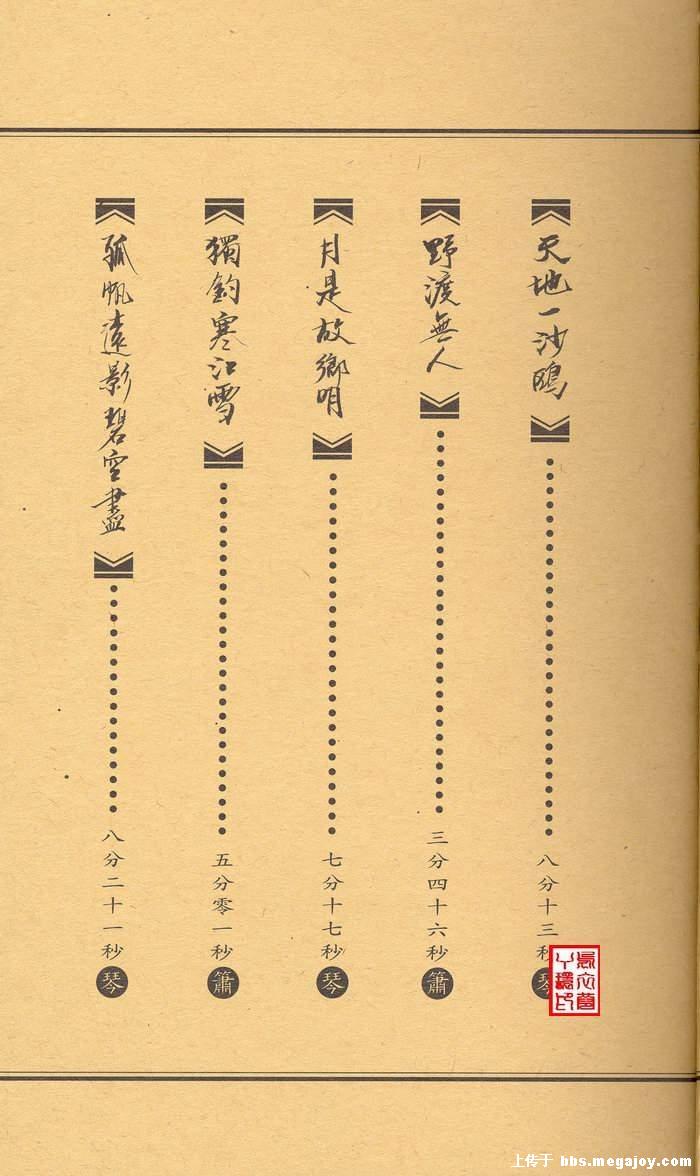 天地一沙鷗
八分十三秒
琴
野渡無人
三分四十六秒
簫
月是故鄉明
七分十七秒
琴
獨釣寒江雪
五分零一秒
簫
孤帆遠影碧空盡
八分二十一秒
琴
上传于 bbs.megajoy.com